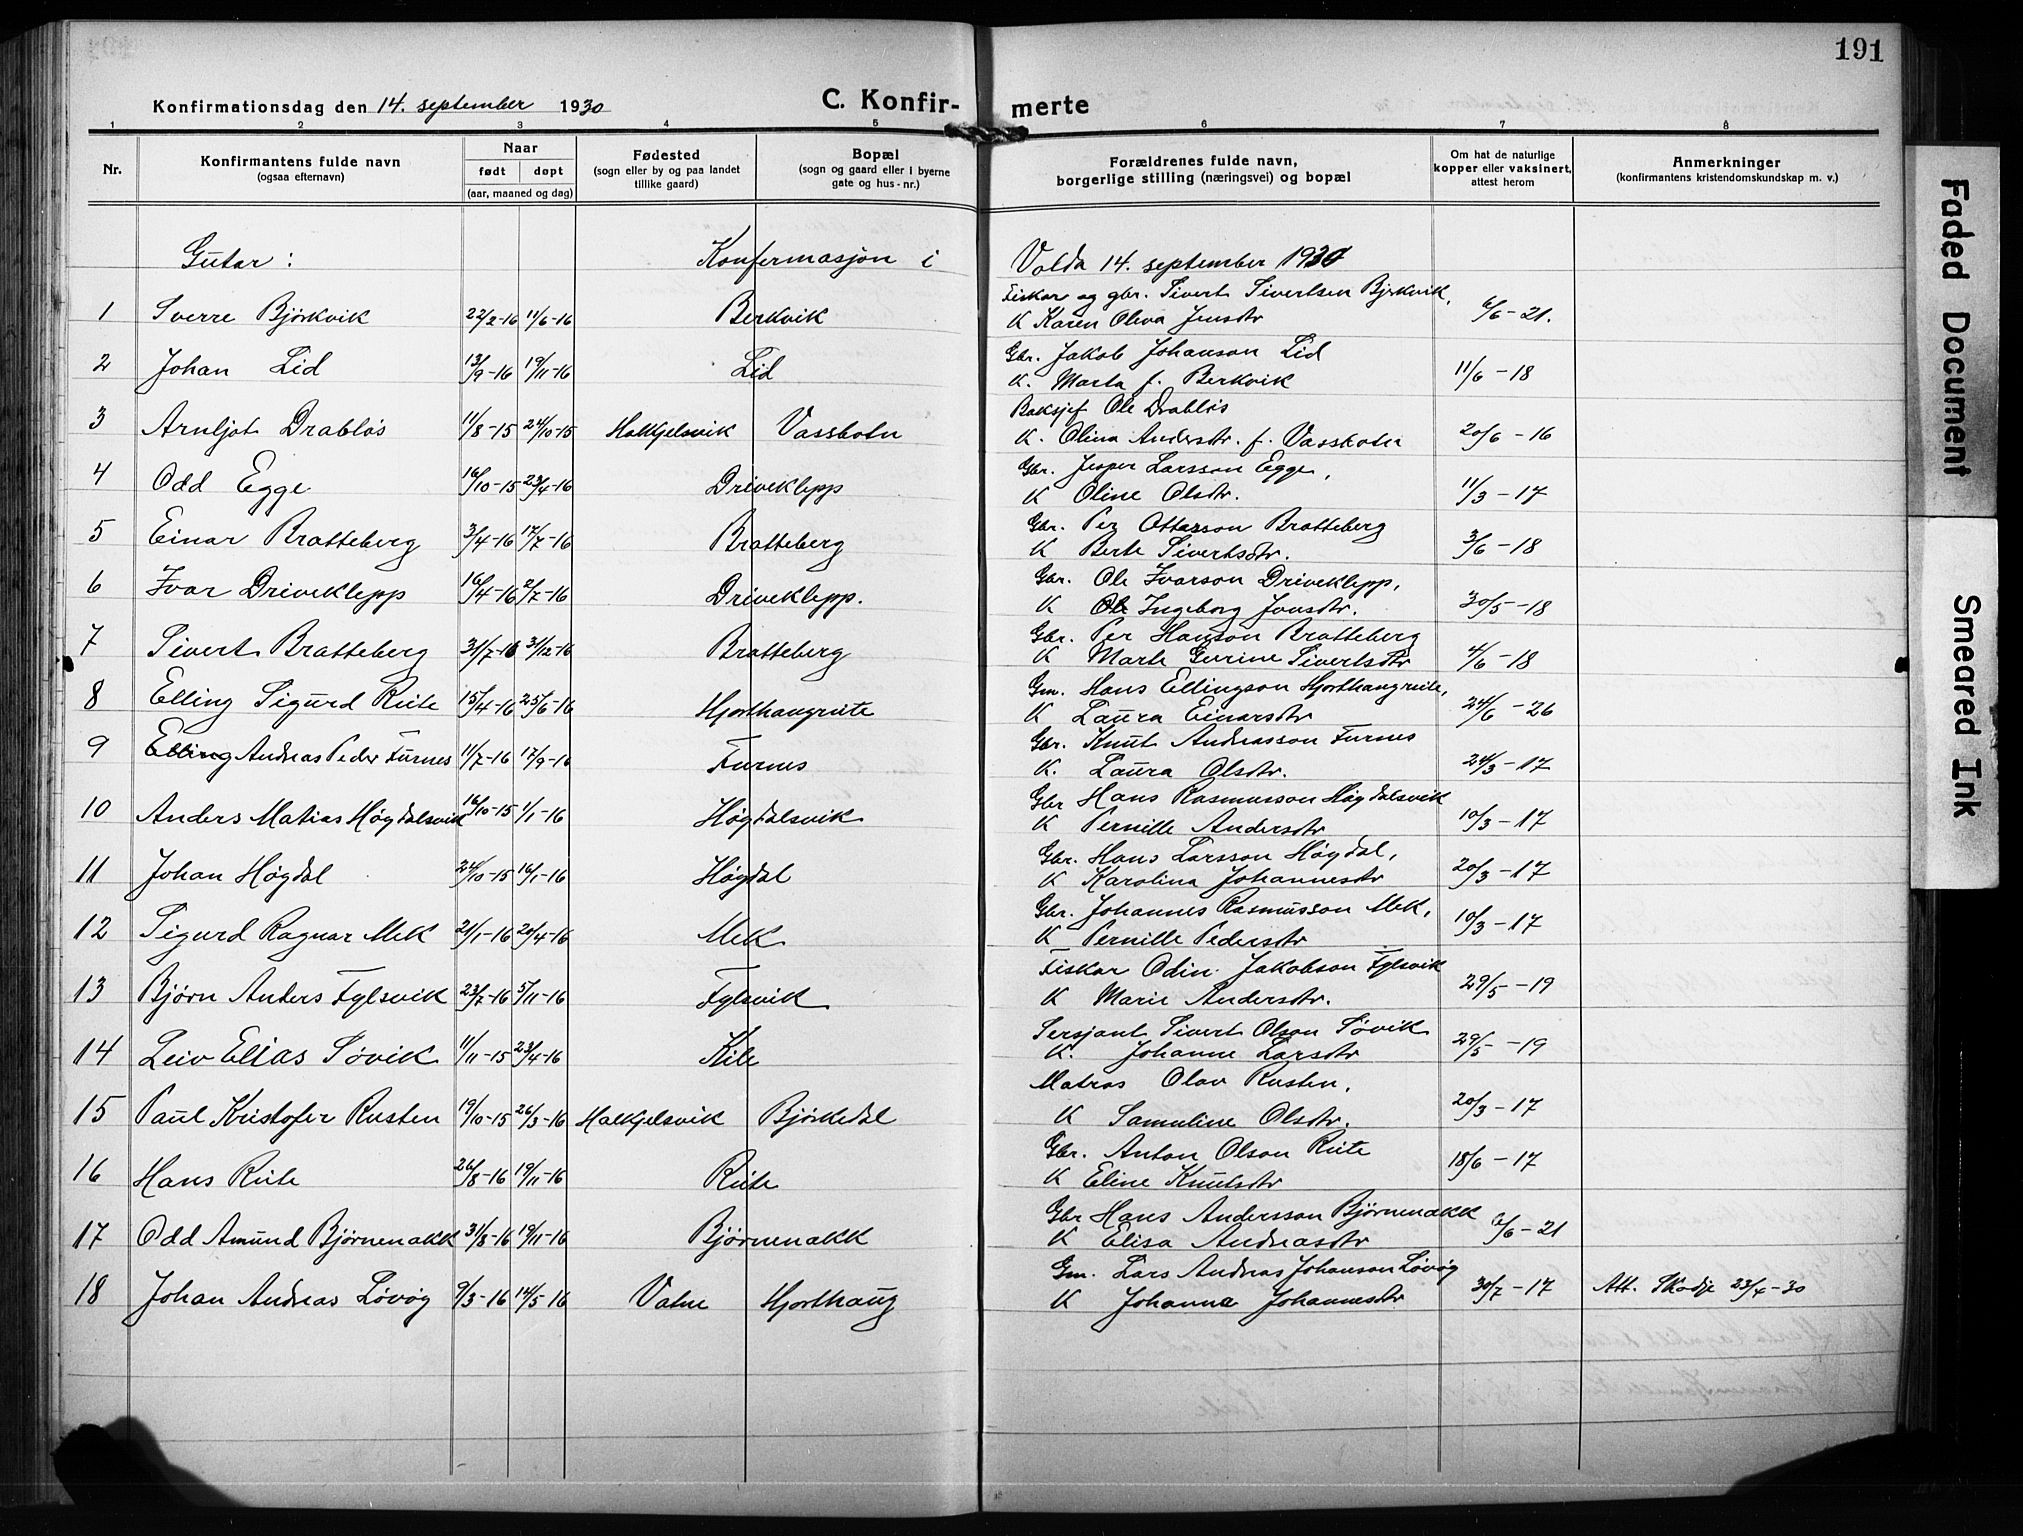 191
Konfirmationsdag den 14. september 1930 C. Konfir- merte
1 2 3 4 5 6 7 8
Nr. Konfirmantens fulde navn (ogsaa efternavn) Naar født døpt (aar, maaned og dag) Fødested (sogn eller by og paa landet tillike gaard) Bopæl (sogn og gaard eller i byerne gate og hus-nr.) Forældrenes fulde navn, borgerlige stilling (næringsvei) og bopæl Om hat de naturlige kopper eller vaksinert, attest herom Anmerkninger (konfirmantens kristendomskundskap m. v.)
Gutar: Konfermasjon i Volda 14. september 1930
1 Sverre Bjørkvik 22/2-16 11/6-16 Berkvik Fiskar og gbr. Sivert Sivertsen Bjrkvik, K Karen Oliva Jensdtr 6/6-21.
2 Johan Lid 13/9-16 19/11-16 Lid Gbr. Jakob Johanson Lid K. Marta f. Berkvik 11/6-18
3 Arnljot Drabløs 11/8-15 24/10-15 Halkjelsvik Vassbotn Baksjef Ole Drabløs K. Olina Andersdtr. f. Vassbotn 20/6-16
4 Odd Egge 16/10-15 23/4-16 Driveklepp Gbr. Jesper Larsson Egge, K Oline Olsdtr. 11/3-17
5 Einar Bratteberg 3/4-16 17/7-16 Bratteberg Gbr. Per Ottarson Bratteberg K Berte Sivertsdtr. 3/6-18
6 Ivar Driveklepp 16/4-16 2/7-16 Driveklepp. Gbr. Ole Ivarson Driveklepp, K Ole Ingeborg Jonsdtr. 30/5-18
7 Sivert Bratteberg 31/7-16 31/12-16 Bratteberg Gbr. Per Hanson Bratteberg K Marte Gurine Sivertsdtr 4/6-18
8 Elling Sigurd Riite 15/4-16 25/6-16 Hjorthaugriite Gm. Hans Ellingson Hjorthaugriite, K Laura Einarsdtr 24/6-26
9 Elling Andreas Peder Furnes 11/7-16 17/9-16 Furnes Gbr. Knut Andreasson Furnes K. Laura Olsdtr. 24/3-17
10 Anders Matias Høgdalsvik 16/10-15 1/1-16 Høgdalsvik Gbr Hans Rasmusson Høgdalsvik K Pernille Andersdtr 10/3-17
11 Johan Høgdal 24/10-15 16/1-16 Høgdal Gbr. Hans Larsson Høgdal, K Karolina Johannesdtr 20/3-17
12 Sigurd Ragnar Mek 21/1-16 20/4-16 Mek Gbr. Johannes Rasmusson Mek, K Pernille Pedersdtr 10/3-17
13 Bjørn Anders Fylsvik 23/7-16 5/11-16 Fylsvik Fiskar Odin Jakobson Fylsvik K Marie Andersdtr. 29/5-19
14 Leiv Elias Søvik 11/11-15 23/4-16 Kile Sersjant Sivert Olson Søvik K. Johanne Larsdtr 29/5-19
15 Paul Kristofer Rusten 19/10-15 26/3-16 Halkjelsvik Bjørkedal Matros Olav Rusten, K Samuline Olsdtr. 20/3-17
16 Hans Riite 26/8-16 19/11-16 Riite Gbr. Anton Olson Riite K Eline Knutsdtr 18/6-17
17 Odd Amund Bjørnenakk 31/8-16 19/11-16 Bjørnenakk Gbr Hans Andersson Bjørnenakk K Elisa Andreasdtr 6/6-21
18 Johan Andreas Løvøg 9/3-16 14/5-16 Vatne Hjorthaug Gm. Lars Andreas Johanson Løvøg K Johanna Johannesdtr 30/7-17 Att. Skodje 23/4-30
Faded Document
Smeared Ink